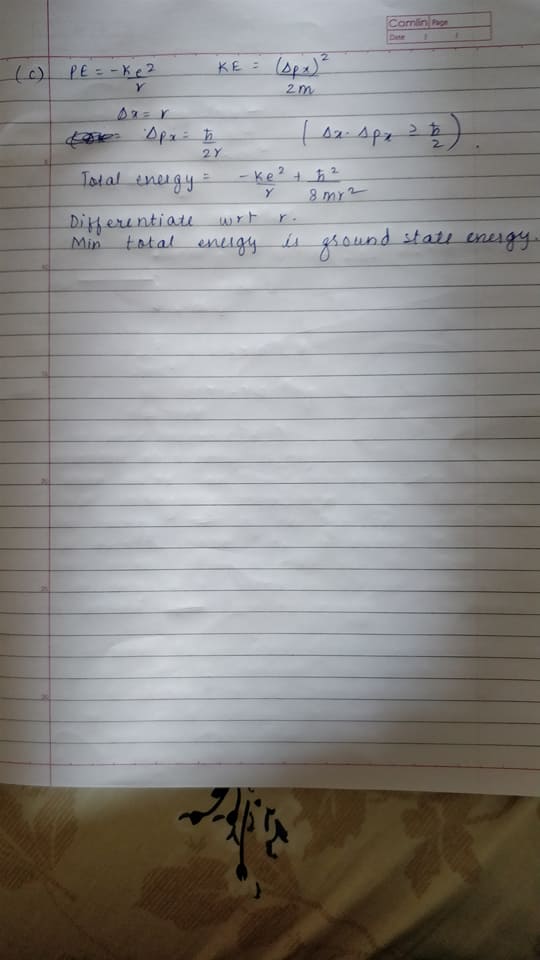 Camlin Page
Date / /
(c) PE = -Ke²/r KE = (Δpx)²/2m
Δx = r
Δpx = ħ/2r (Δx·Δpx ≥ ħ/2).
Total energy = -Ke²/r + ħ²/8mr²
Differentiate wrt r.
Min total energy is ground state energy.